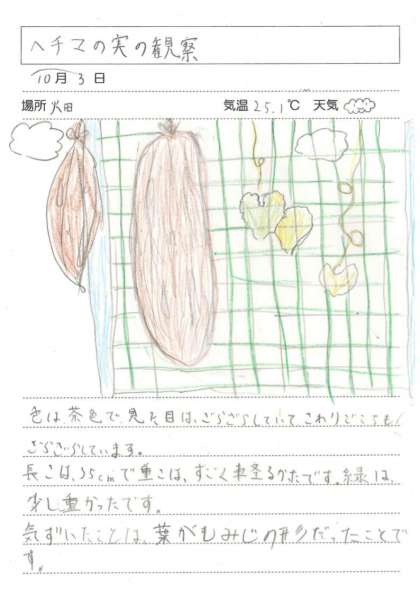 ヘチマの実の観察
10月3日
場所 火田 気温 25.1℃ 天気
色は茶色で見た目は、ざらざらしていてさわりごこちも
ざらざらしています。
長こは、35cmで重こは、すごく車圣るかたです。緑は、
少し重かったです。
気ずいたことは、葉がもみじの形だったことで
す。